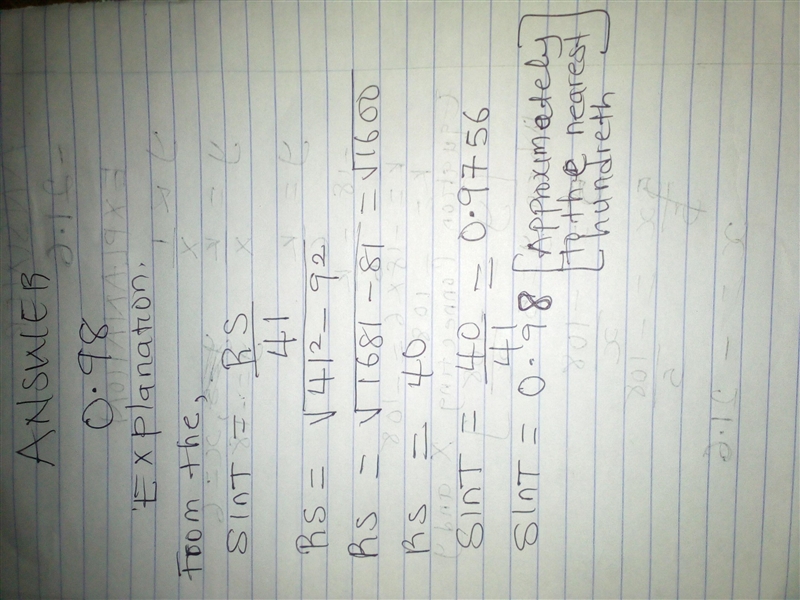 ANSWER
0.98
Explanation.
From the,
SinT = RS/41
RS = √41² - 92
RS = √1681 - 81 = √1600
RS = 40
SinT = 40/41 = 0.9756
SinT = 0.98 [Approximately
to the nearest
hundreth]